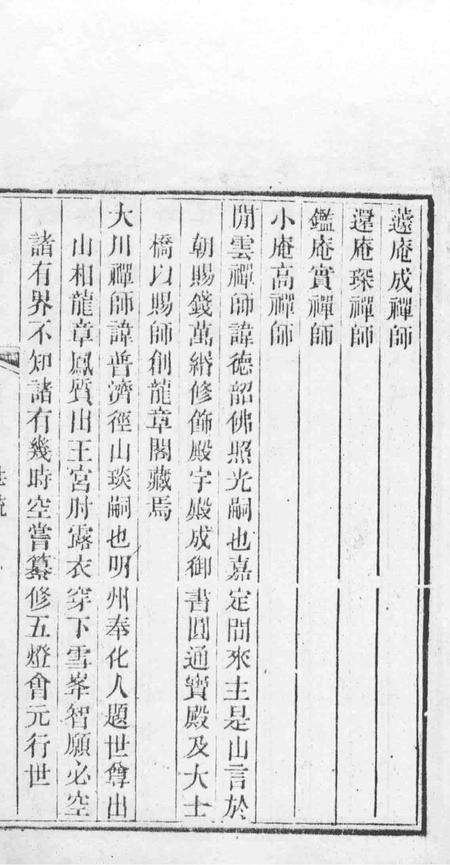 遯庵成禪師
還庵琛禪師
鑑庵實禪師
小庵高禪師
閒雲禪師諱德韶佛照光嗣也嘉定間來主是山言於
朝賜錢萬緡修飾殿宇殿成御書圓通寶殿及大士
橋以賜師創龍章閣藏焉
大川禪師諱普濟徑山琰嗣也明州奉化人題世尊出
山相龍章鳳質出王宮肘露衣穿下雪峯智願必空
諸有界不知諸有幾時空嘗纂修五燈會元行世